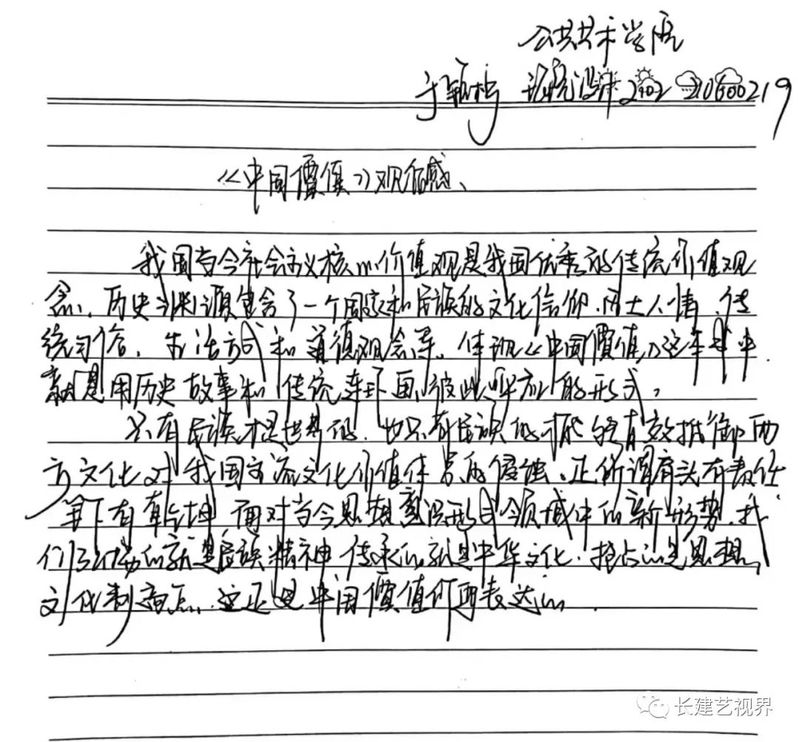 公共艺术学院
环境设计2102 210600219
《中国價值》观后感、
我国当今社会主义核心价值观是我国优秀的传统价值观
念、历史渊源包含了一个国家和民族的文化信仰、风土人情、传
统习俗、生活方式和道德观念等。体现《中国價值》这本书中
就是用历史故事和传统连环画彼此呼应的形式。
只有民族才是世界的、也只有民族的才能够有效抵御西
方文化对我国主流文化价值体系的侵蚀、正所谓肩头有责任
笔下有乾坤、面对当今思想意识形式领域中的新形势、我
们弘扬的就是民族精神 传承的就是中华文化、抢占的是思想、
文化制高点、这正是中国價值所要表达的、
长建艺视界